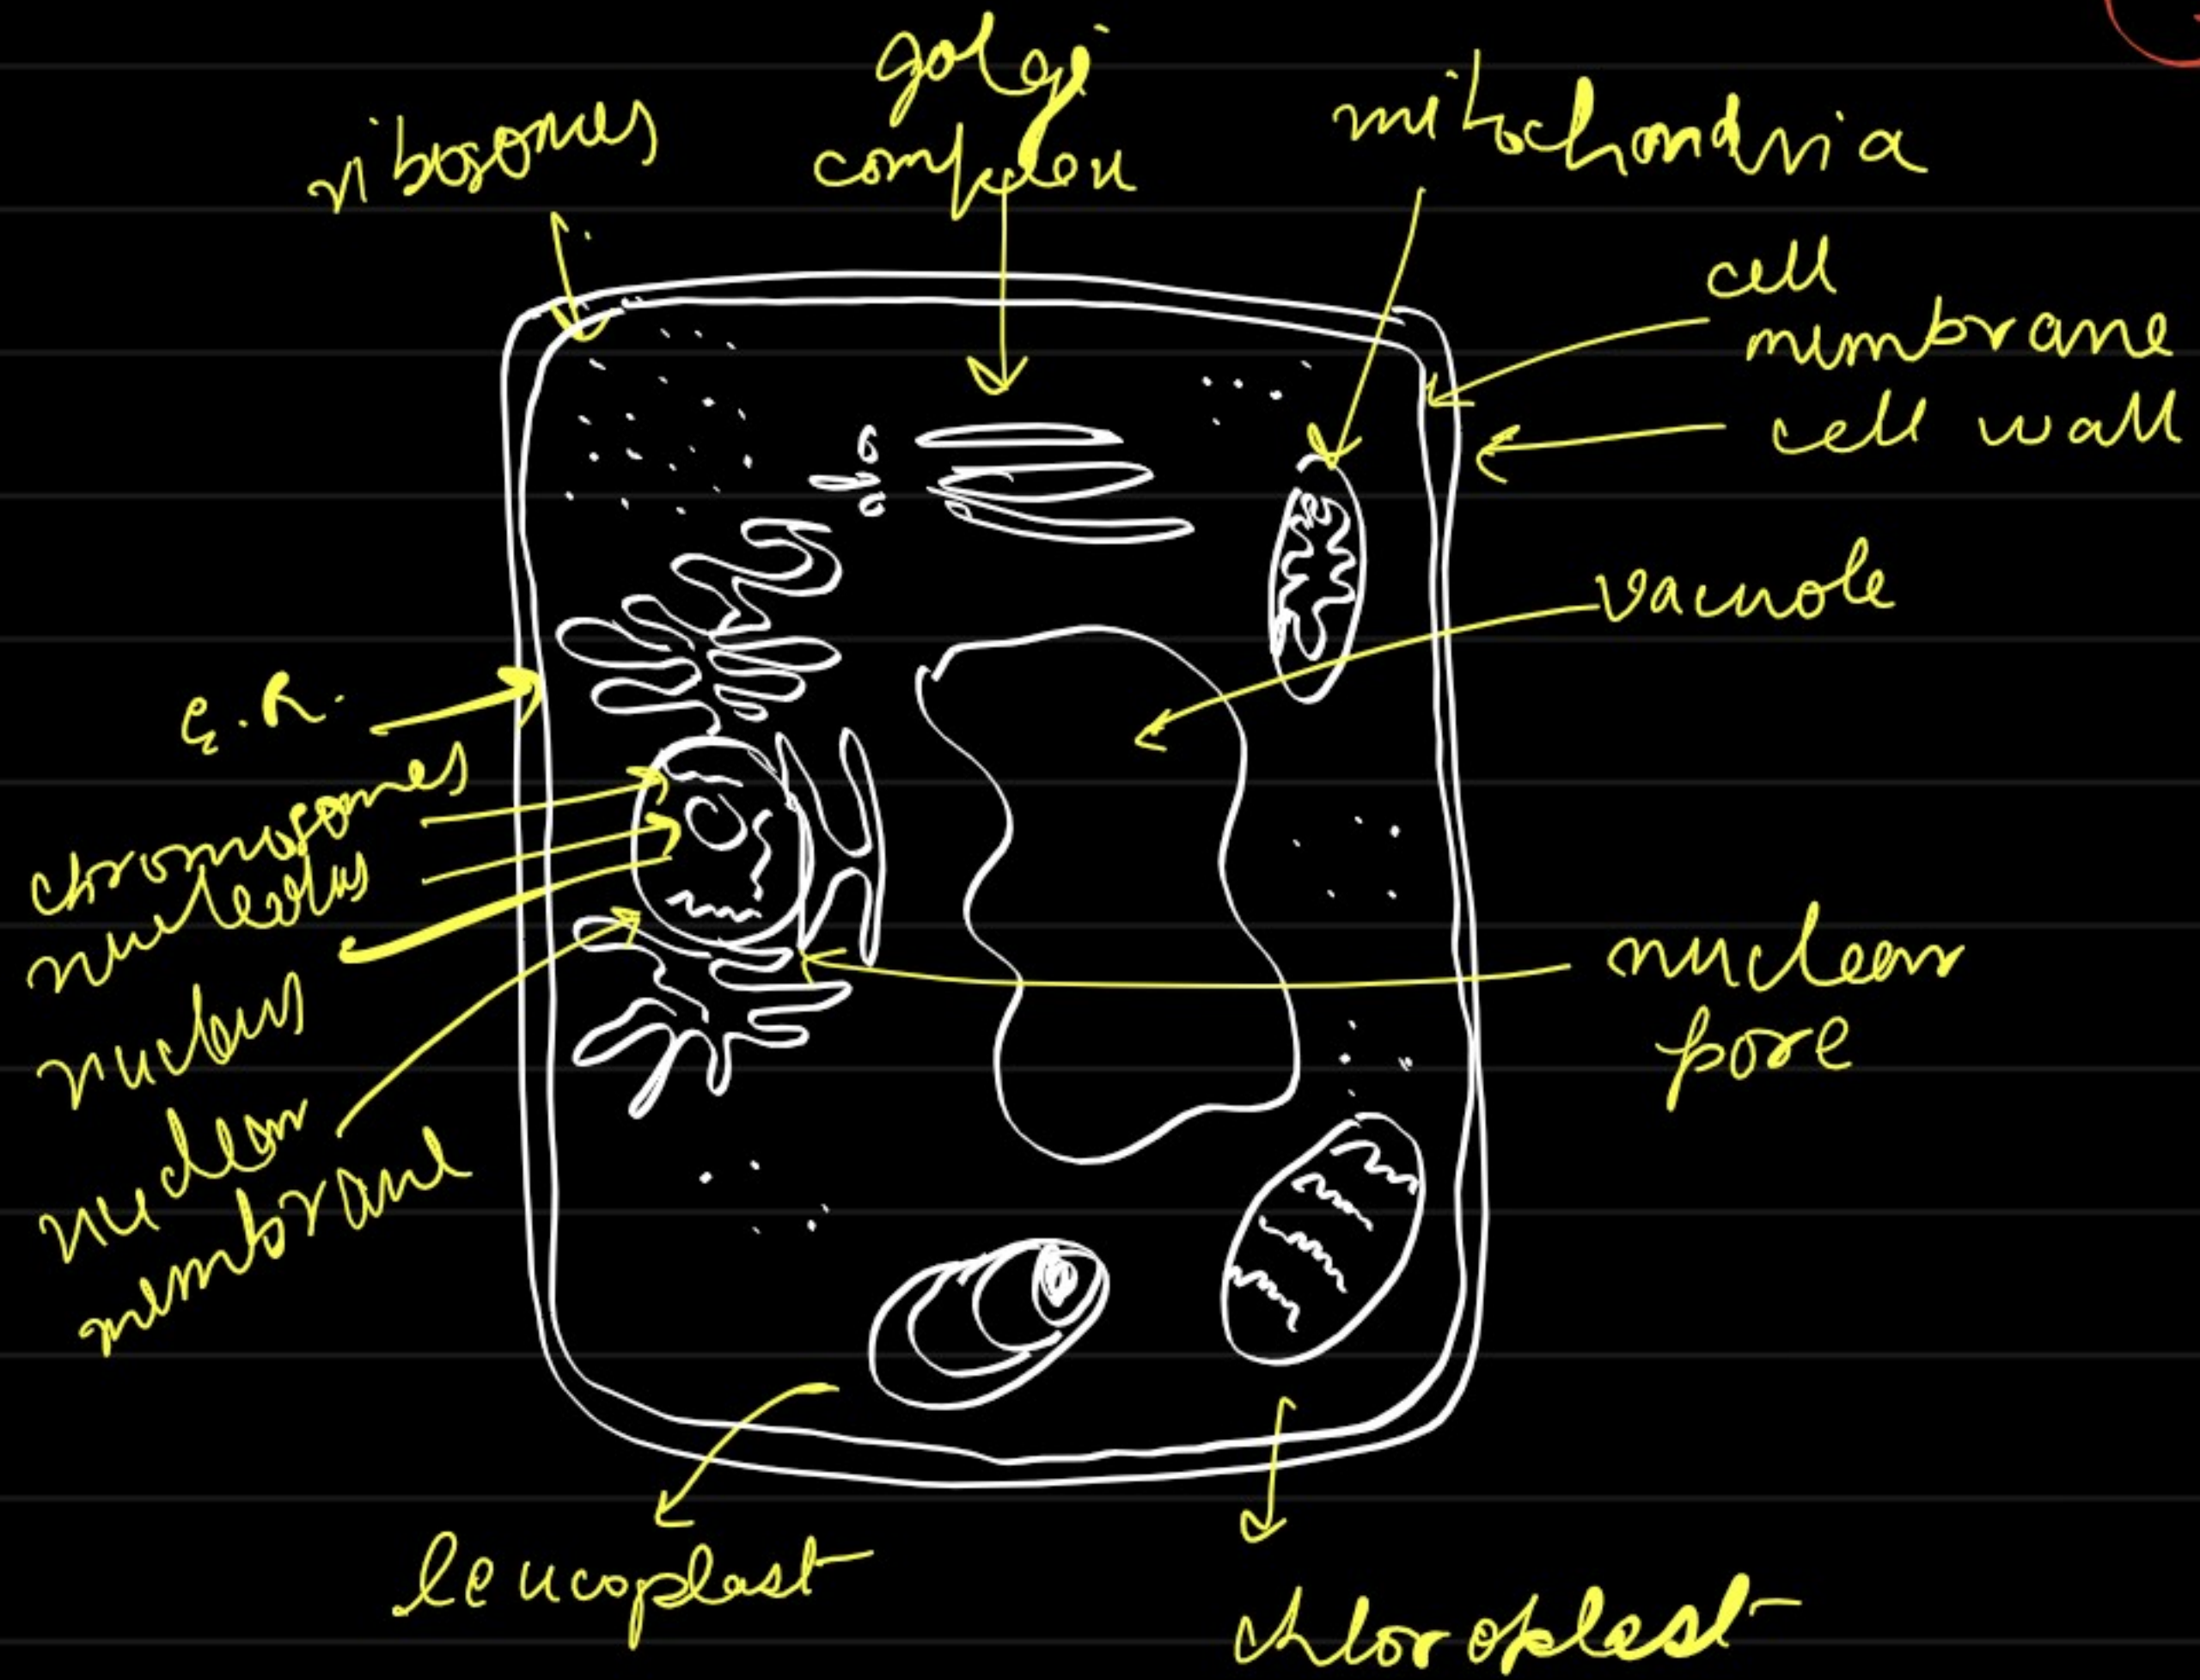 ribosomes
golgi
complex
mitochondria
cell
membrane
cell wall
vacuole
E.R.
chromosomes
nucleolus
nucleus
nuclear
membrane
nuclear
pore
leucoplast
chloroplast